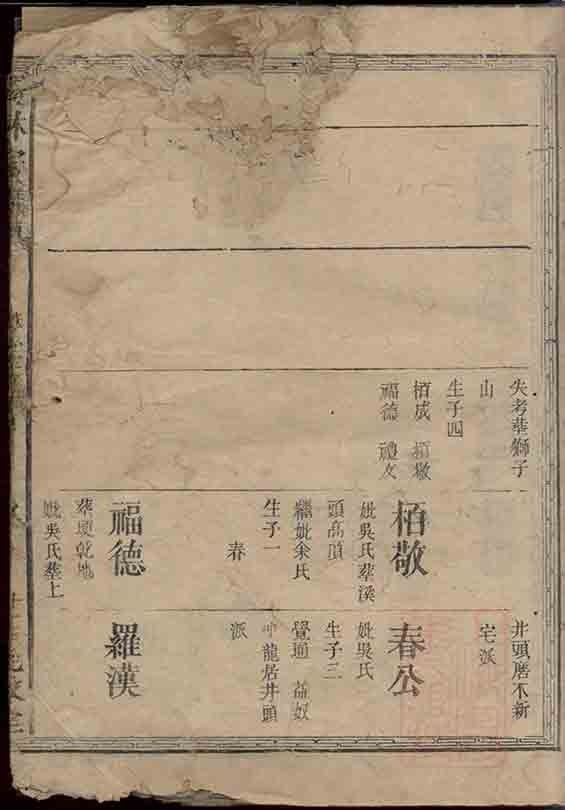 失考塟獅子
山
生子四
栢成 栢敬
福德 禮文
栢敬
妣吳氏塟溪
頭高頂
繼妣余氏
生子一
春
福德
塟埂乾地
妣吳氏塟上
井頭磨不新
宅派
春公
妣吳氏
生子三
覺通 益奴
龍居井頭
派
羅漢